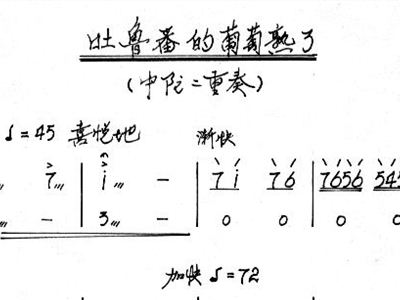 吐鲁番的葡萄熟了
(中阮二重奏)
♩=45 喜悦地 渐快
7,,, | i,,, - | 7 i 7 6 | 7656 545
- | 3,,, - | 0 0 | 0 0
加快 ♩=72